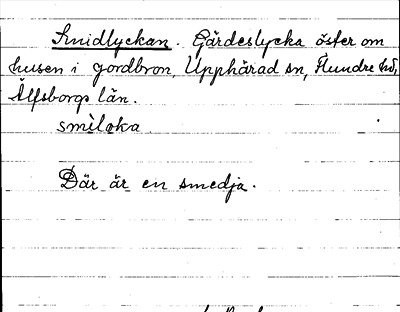 Smidlyckan. Gärdeslycka öster om
husen i Jordbron, Upphärad sn, Flundre hd,
Älfsborgs län.
smìlɷka
Där är en smedja.